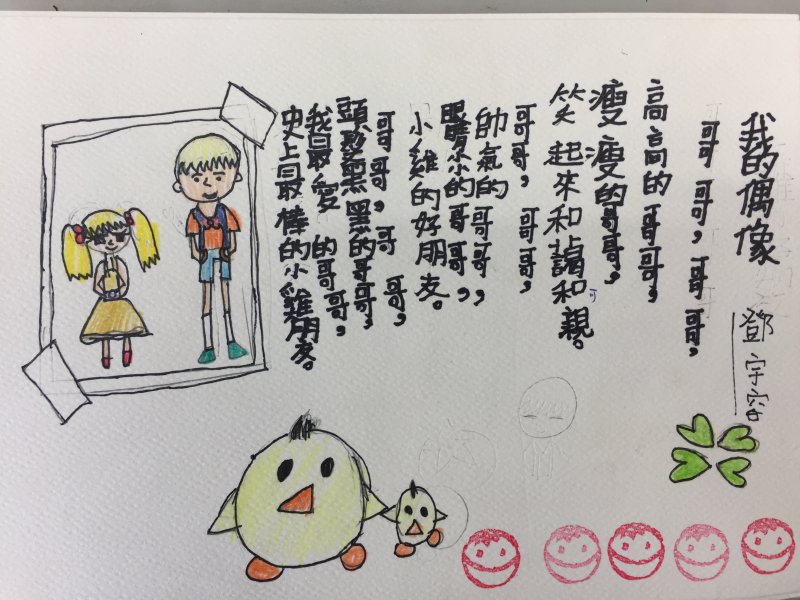 我的偶像
鄧宇容
哥哥,哥哥,
高高的哥哥,
瘦瘦的哥哥,
笑起來和藹和親。
可
哥哥,哥哥,
帥氣的哥哥,
眼睛小小的哥哥,
小雞的好朋友。
哥哥,哥哥,
頭髮黑黑的哥哥,
我最愛的哥哥,
史上最棒的小雞朋友。